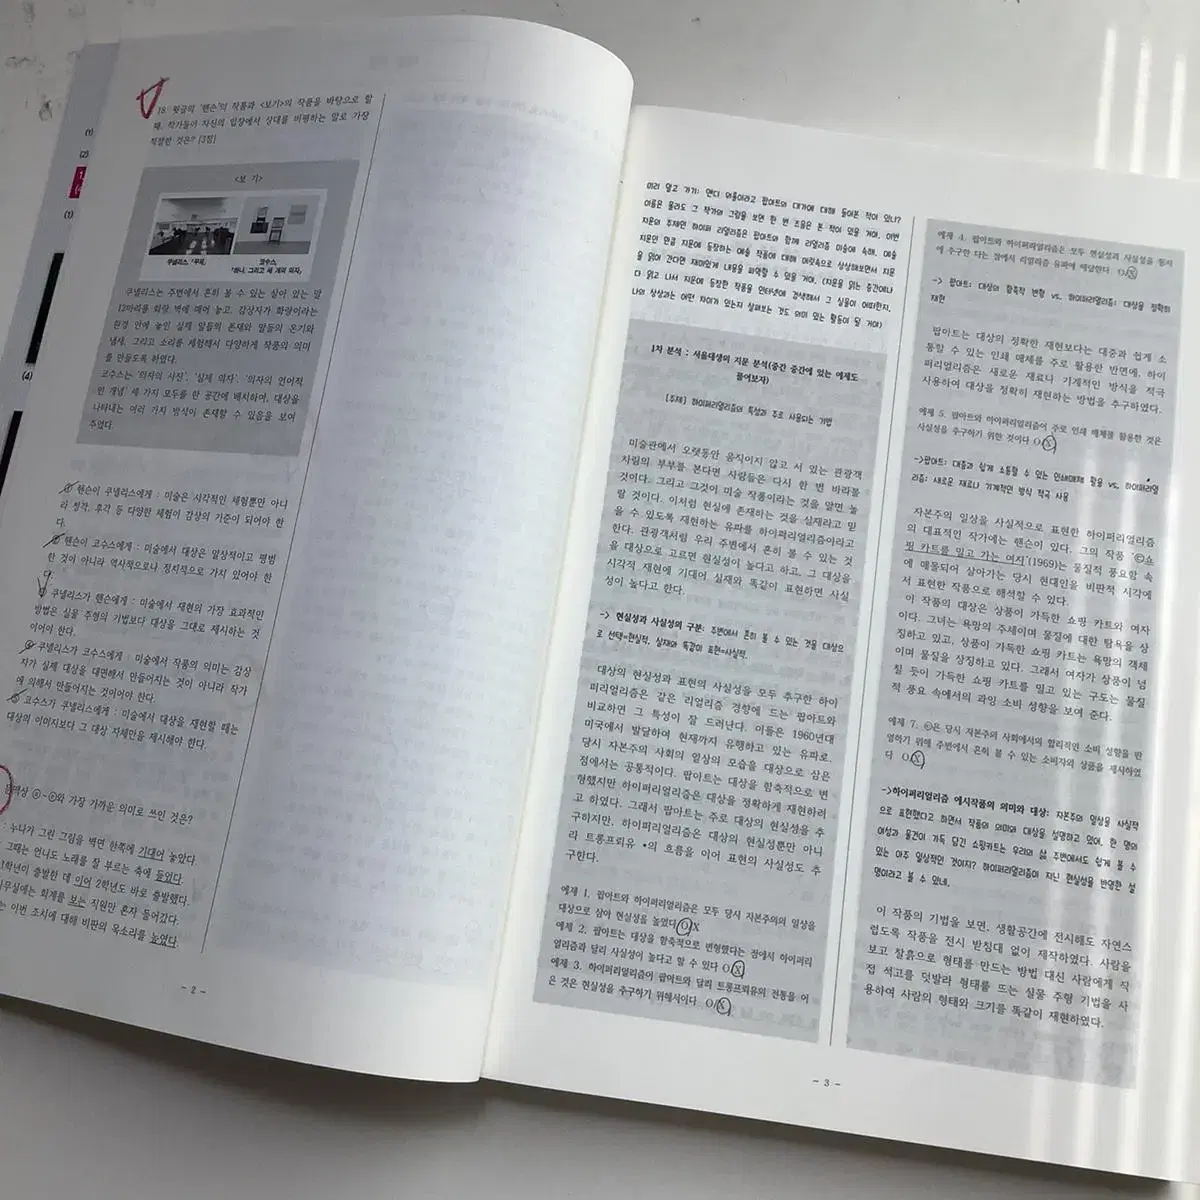 18. 윗글의 '핸슨'의 작품과 <보기>의 작품을 바탕으로 할
때, 작가들이 자신의 입장에서 상대를 비평하는 말로 가장
적절한 것은? [3점]
(1)
(2)
(1)
(4)
<보 기>
쿠넬리스, 「무제」
코수스,
「하나, 그리고 세 개의 의자」
쿠넬리스는 주변에서 흔히 볼 수 있는 살아 있는 말
12마리를 화랑 벽에 매어 놓고, 감상자가 화랑이라는
환경 안에 놓인 실제 말들의 존재와 말들의 온기와
냄새, 그리고 소리를 체험해서 다양하게 작품의 의미
를 만들도록 하였다.
코수스는 '의자의 사진', '실제 의자', '의자의 언어적
인 개념' 세 가지 모두를 한 공간에 배치하여, 대상을
나타내는 여러 가지 방식이 존재할 수 있음을 보여
주었다.
① 핸슨이 쿠넬리스에게 : 미술은 시각적인 체험뿐만 아니
라 청각, 후각 등 다양한 체험이 감상의 기준이 되어야 한
다.
② 핸슨이 코수스에게 : 미술에서 대상은 일상적이고 평범
한 것이 아니라 역사적으로나 정치적으로 가치 있어야 한
다.
쿠넬리스가 핸슨에게 : 미술에서 재현의 가장 효과적인
방법은 실물 주형의 기법보다 대상을 그대로 제시하는 것
이어야 한다.
④ 쿠넬리스가 코수스에게 : 미술에서 작품의 의미는 감상
자가 실제 대상을 대면해서 만들어지는 것이 아니라 작가
에 의해서 만들어지는 것이어야 한다.
⑤ 코수스가 쿠넬리스에게 : 미술에서 대상을 재현할 때는
대상의 이미지보다 그 대상 자체만을 제시해야 한다.
문맥상 ⓐ~ⓔ와 가장 가까운 의미로 쓰인 것은?
: 누나가 그린 그림을 벽면 한쪽에 기대어 놓았다.
그때는 언니도 노래를 잘 부르는 축에 들었다.
1학년이 출발한 데 이어 2학년도 바로 출발했다.
사무실에는 회계를 보는 직원만 혼자 들어갔다.
는 이번 조치에 대해 비판의 목소리를 높였다.
- 2 -
미리 알고 가기: 앤디 워홀이라고 팝아트의 대가에 대해 들어본 적이 있니?
이름은 몰라도 그 작가의 그림을 보면 한 번 쯤은 본 적이 있을 거야. 이번
지문의 주제인 하이퍼 리얼리즘은 팝아트와 함께 리얼리즘 미술에 속해. 예술
지문인 만큼 지문에 등장하는 예술 작품에 대해 머릿속으로 상상해보면서 지문
을 읽어 간다면 재미있게 내용을 파악할 수 있을 거야. (지문을 읽는 중간에나
다 읽고 나서 지문에 등장한 작품을 인터넷에 검색해서 그 실물이 어떠한지,
나의 상상과는 어떤 차이가 있는지 살펴보는 것도 의미 있는 활동이 될 거야)
1차 분석 : 서울대생의 지문 분석(중간 중간에 있는 예제도
풀어보자)
[주제] 하이퍼리얼리즘의 특성과 주로 사용되는 기법
미술관에서 오랫동안 움직이지 않고 서 있는 관광객
차림의 부부를 본다면 사람들은 다시 한 번 바라볼
것이다. 그리고 그것이 미술 작품이라는 것을 알면 놀
랄 것이다. 이처럼 현실에 존재하는 것을 실재라고 믿
을 수 있도록 재현하는 유파를 하이퍼리얼리즘이라고
한다. 관광객처럼 우리 주변에서 흔히 볼 수 있는 것
을 대상으로 고르면 현실성이 높다고 하고, 그 대상을
시각적 재현에 기대어 실재와 똑같이 표현하면 사실
성이 높다고 한다.
-> 현실성과 사실성의 구분: 주변에서 흔히 볼 수 있는 것을 대상으
로 선택=현실적, 실재와 똑같이 표현=사실적.
대상의 현실성과 표현의 사실성을 모두 추구한 하이
퍼리얼리즘은 같은 리얼리즘 경향에 드는 팝아트와
비교하면 그 특성이 잘 드러난다. 이들은 1960년대
미국에서 발달하여 현재까지 유행하고 있는 유파로,
당시 자본주의 사회의 일상의 모습을 대상으로 삼은
점에서는 공통적이다. 팝아트는 대상을 함축적으로 변
형했지만 하이퍼리얼리즘은 대상을 정확하게 재현하려
고 하였다. 그래서 팝아트는 주로 대상의 현실성을 추
구하지만, 하이퍼리얼리즘은 대상의 현실성뿐만 아니
라 트롱프뢰유 •의 흐름을 이어 표현의 사실성도 추
구한다.
예제 1. 팝아트와 하이퍼리얼리즘은 모두 당시 자본주의의 일상을
대상으로 삼아 현실성을 높였다 O/X
예제 2. 팝아트는 대상을 함축적으로 변형했다는 점에서 하이퍼리
얼리즘과 달리 사실성이 높다고 할 수 있다 O/X
예제 3. 하이퍼리얼리즘이 팝아트와 달리 트롱프뢰유의 전통을 이
은 것은 현실성을 추구하기 위해서이다 O/X
예제 4. 팝아트와 하이퍼리얼리즘은 모두 현실성과 사실성을 동시
에 추구한 다는 점에서 리얼리즘 유파에 해당한다 O/X
-> 팝아트: 대상의 함축적 변형 vs. 하이퍼리얼리즘: 대상을 정확히
재현
팝아트는 대상의 정확한 재현보다는 대중과 쉽게 소
통할 수 있는 인쇄 매체를 주로 활용한 반면에, 하이
퍼리얼리즘은 새로운 재료나 기계적인 방식을 적극
사용하여 대상을 정확히 재현하는 방법을 추구하였다.
예제 5. 팝아트와 하이퍼리얼리즘이 주로 인쇄 매체를 활용한 것은
사실성을 추구하기 위한 것이다 O/X
->팝아트: 대중과 쉽게 소통할 수 있는 인쇄매체 활용 vs. 하이퍼리얼
리즘: 새로운 재료나 기계적인 방식 적극 사용
자본주의 일상을 사실적으로 표현한 하이퍼리얼리즘
의 대표적인 작가에는 핸슨이 있다. 그의 작품 ‘㉢쇼
핑 카트를 밀고 가는 여자’(1969)는 물질적 풍요함 속
에 매몰되어 살아가는 당시 현대인을 비판적 시각에
서 표현한 작품으로 해석할 수 있다.
이 작품의 대상은 상품이 가득한 쇼핑 카트와 여자
이다. 그녀는 욕망의 주체이며 물질에 대한 탐욕을 상
징하고 있고, 상품이 가득한 쇼핑 카트는 욕망의 객체
이며 물질을 상징하고 있다. 그래서 여자가 상품이 넘
칠 듯이 가득한 쇼핑 카트를 밀고 있는 구도는 물질
적 풍요 속에서의 과잉 소비 성향을 보여 준다.
예제 7. ㉢은 당시 자본주의 사회에서의 합리적인 소비 성향을 반
영하기 위해 주변에서 흔히 볼 수 있는 소비자와 상품을 제시하였
다 O/X
->하이퍼리얼리즘 예시작품의 의미와 대상: 자본주의 일상을 사실적
으로 표현했다고 하면서 작품의 의미와 대상을 설명하고 있어. 한 명의
여성과 물건이 가득 담긴 쇼핑카트는 우리의 삶 주변에서도 쉽게 볼 수
있는 아주 일상적인 것이지? 하이퍼리얼리즘이 지닌 현실성을 반영한 설
명이라고 볼 수 있네.
이 작품의 기법을 보면, 생활공간에 전시해도 자연스
럽도록 작품을 전시 받침대 없이 제작하였다. 사람을
보고 찰흙으로 형태를 만드는 방법 대신 사람에게 직
접 석고를 덧발라 형태를 뜨는 실물 주형 기법을 사
용하여 사람의 형태와 크기를 똑같이 재현하였다.
- 3 -